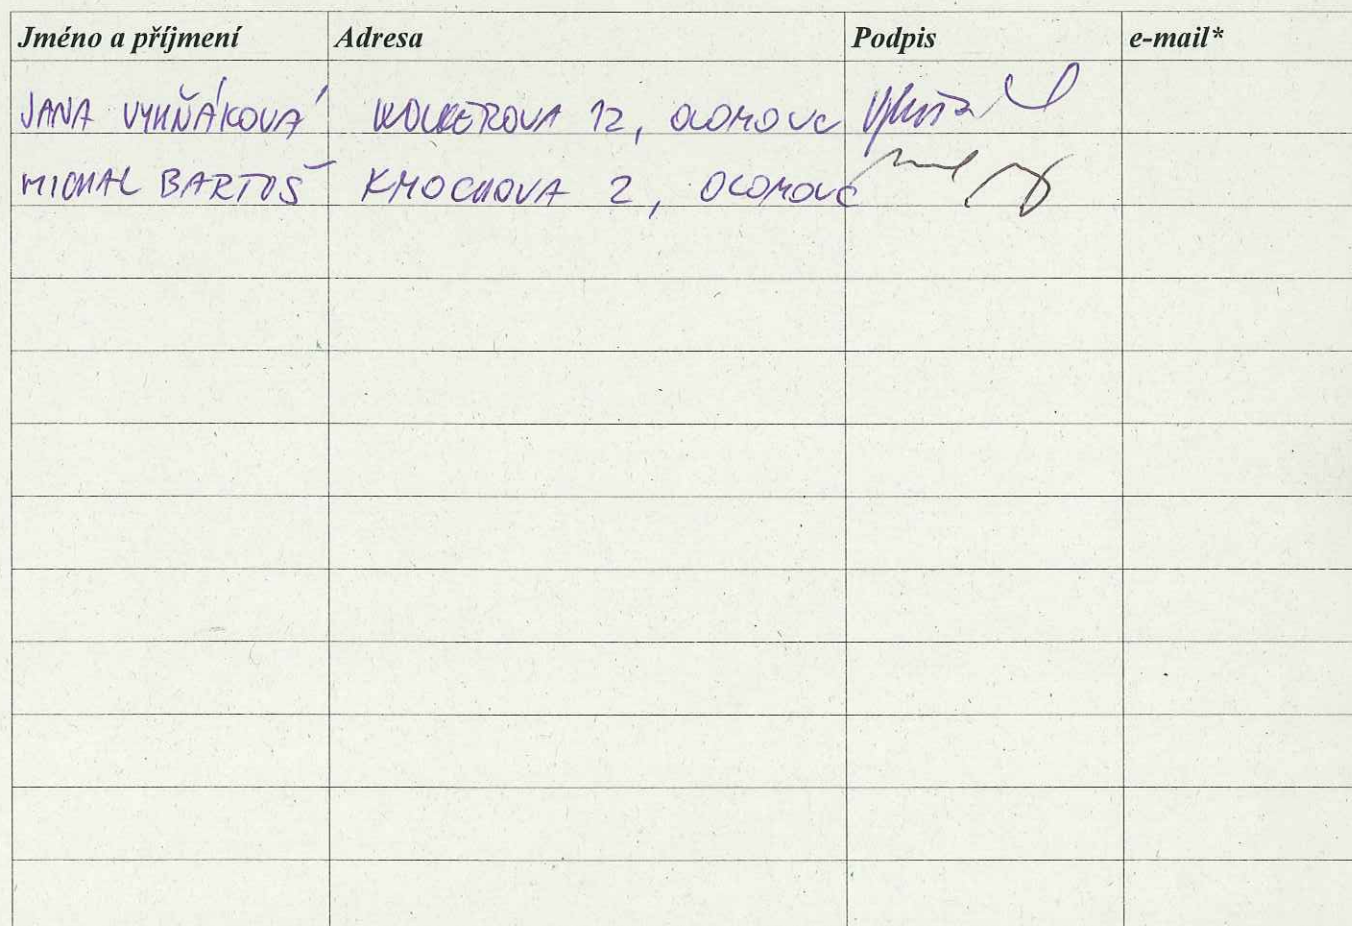 Jméno a příjmení Adresa Podpis e-mail*
JANA VYHŇÁKOVÁ WOLKEROVA 12, OLOMOUC
MICHAL BARTOŠ KMOCHOVA 2, OLOMOUC